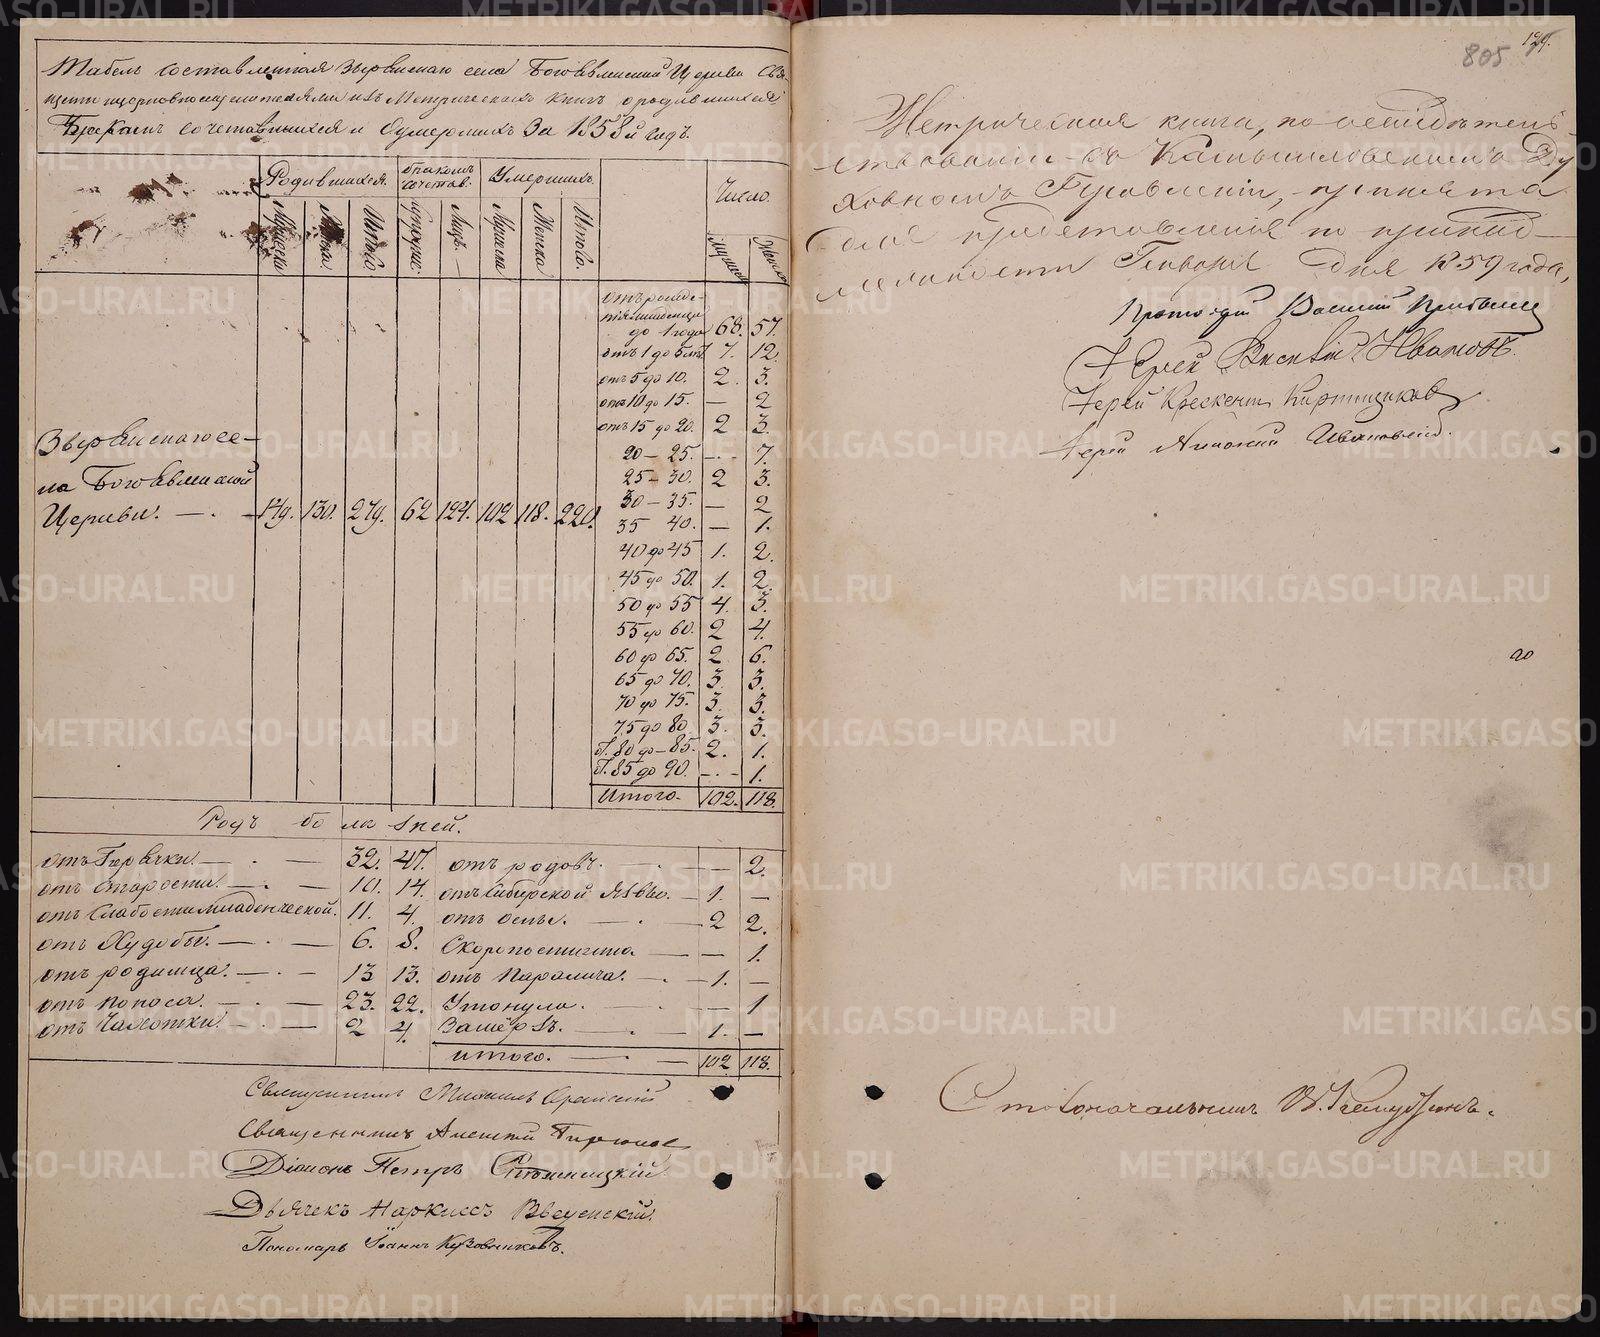 Табель составленная Зырянскаго села Богоявленской Церкви Свя-
щенноцерковнослужителями изъ Метрическихъ книгъ о родившихся
Бракомъ сочетавшихся и Умершихъ За 1858й годъ.
Родившихся. бракомъ сочетав. Умершихъ. Число.
Мужеска Женска. Итого Супруж. Лицъ. Мужеска Женска Итого. мужеска Женска
отъ рожде-
нія младенца
до 1 года 68. 57.
отъ 1 до 5 лѣтъ 7. 12.
отъ 5 до 10. 2. 3.
отъ 10 до 15. — 2
отъ 15 до 20. 2 3.
20 — 25. — 7.
25 — 30. 2 3.
30 — 35. — 2
35 40. — 1.
40 до 45 1. 2.
45 до 50. 1. 2
50 до 55 4. 3.
55 до 60. 2 4.
60 до 65. 2 6.
65 до 70. 3. 3.
70 до 75. 3. 3.
75 до 80. 3. 3.
80 до 85. 2. 1.
85 до 90. — 1.
Итого. 102. 118.
Зырянскаго се-
ла Богоявленской
Церкви. 149. 130. 279. 62 124. 102 118. 220.
Родъ болѣзней.
отъ Горячки. 32. 47. отъ родовъ. — 2.
отъ старости. 10. 14. отъ Сибирской Язвы. 1. —
отъ Слабости Младенческой. 11. 4. отъ оспы. 2 2.
отъ Худобы. 6. 8. Скоропостижно. — 1.
отъ родимца. 13 13. отъ Паралича. 1. —
отъ поноса. 23. 22. Утонула. — 1
отъ Чахотки. 2 4. Замёрзъ. 1. —
итого. 102 118.
Священникъ Михаилъ
Священникъ Алексѣй
Діаконъ Петръ
Дьячекъ Наркиссъ Введенскій.
Пономарь Іоаннъ Кузовниковъ.
805 129.
Метрическая книга, по освидѣтель-
ствованіи въ Камышловскомъ Ду-
ховномъ Правленіи, принята
для представленія по принад-
лежности Генваря дня 1859 года,
Протоіерей Василій
Іерей Иванов.
Іерей Крескентъ Киртшиков
Іерей
Столоначальникъ
METRIKI.GASO-URAL.RU